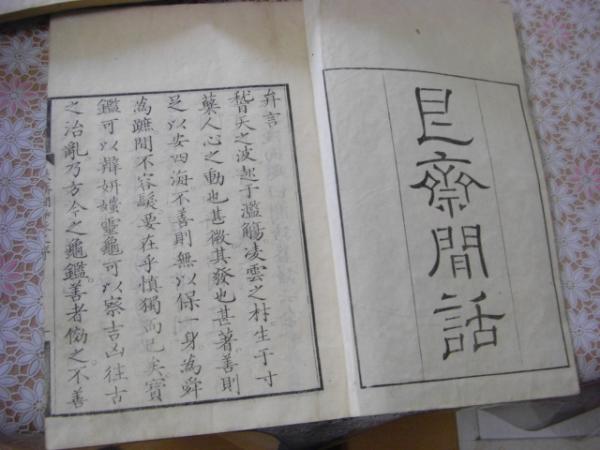 艮齋閒話
弁言
稽天之波起于濫觴凌雲之材生于寸
蘖人心之動也甚微其發也甚著善則
足以安四海不善則無以保一身為舜
為蹠間不容髮要在乎慎獨而已矣寶
鑑可以辯妍媸靈龜可以察吉凶往古
之治亂乃方今之龜鑑善者傚之不善